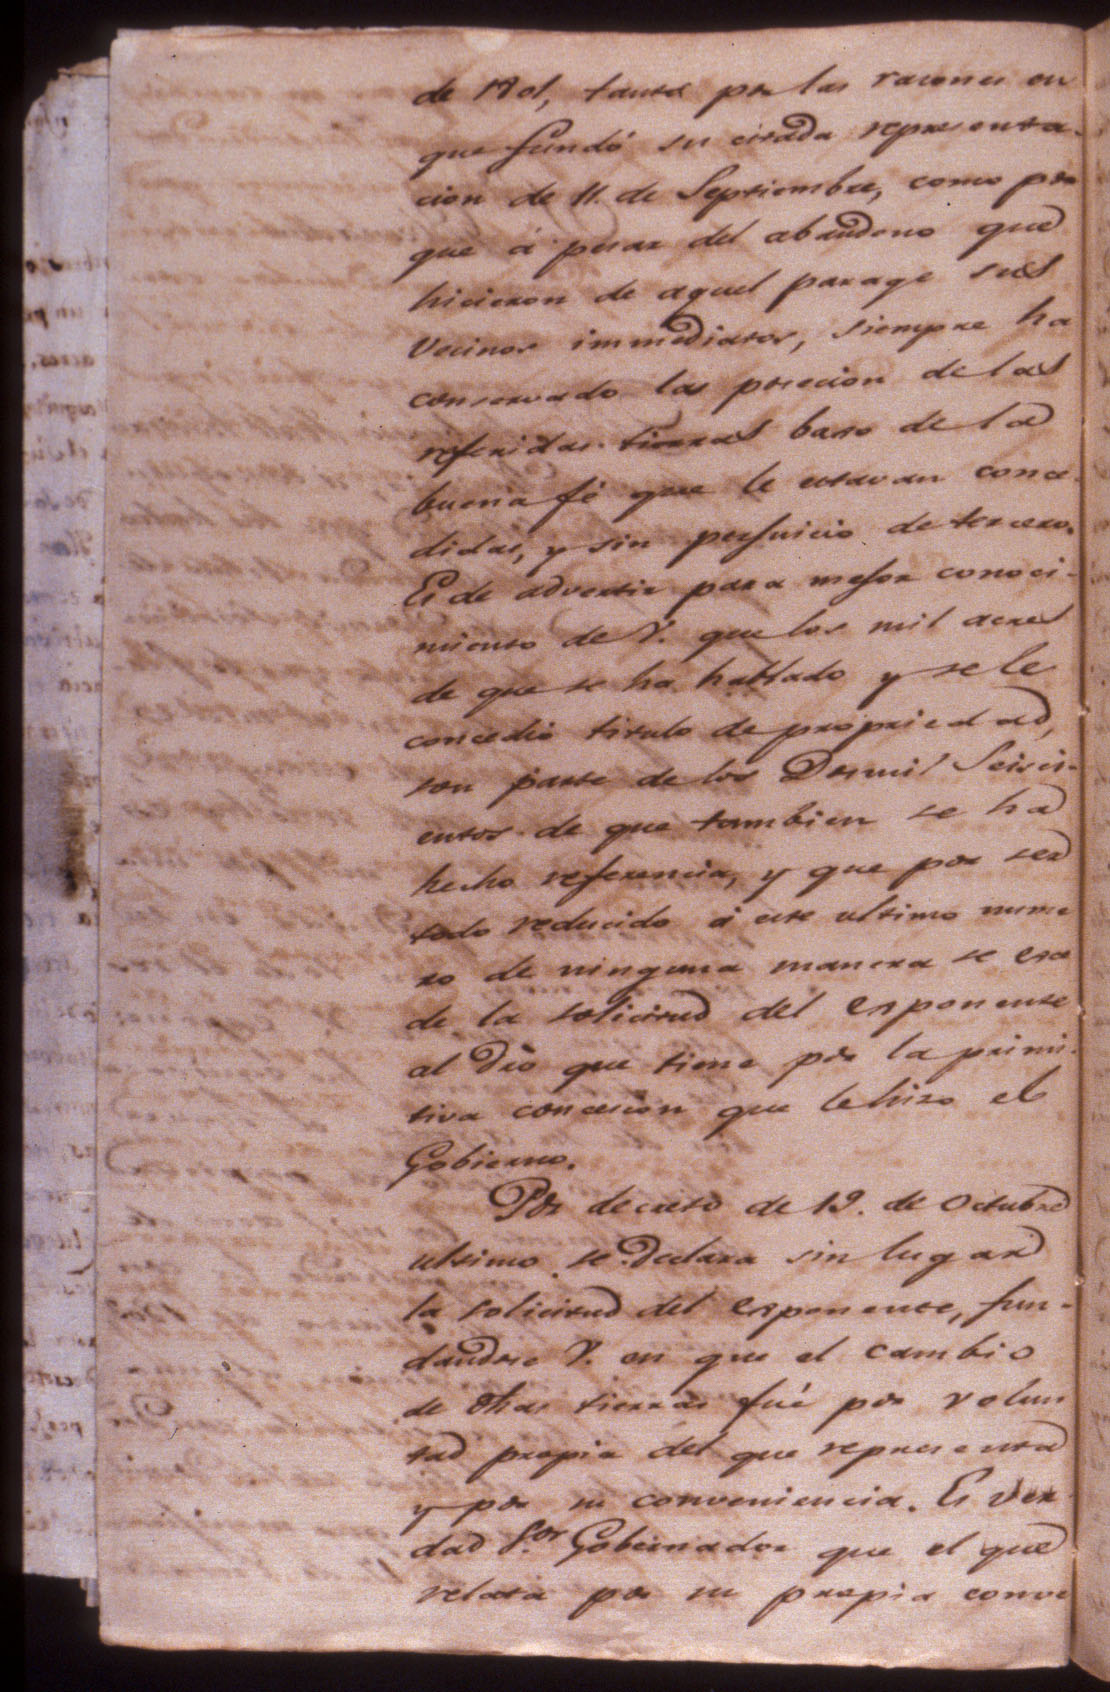 de 1801, tanto por las razones en
que fundó su citada representa-
cion de 11. de Septiembre, como por
que á pesar del abandono que
hicieron de aquel parage sus
Vecinos immediatos, siempre ha
conservado las posecion de las
referidas tierras baxo de la
buena fé que le estavan conce-
didas, y sin perjuicio de tercero.
Es de advertir para mejor conoci-
miento de V. que los mil acres
de que se ha hablado y se le
concedió titulo de propriedad,
son parte de los Dosmil Seisci-
entos de que tambien se ha
hecho referencia, y que por ser
todo reducido á este ultimo nume
ro de ninguna manera se exce
de la solicitud del esponente
al dro que tiene por la primi-
tiva concesion que le hizo el
Gobierno.
Por decreto de 19. de Octubre
ultimo se declara sin lugar
la solicitud del esponente, fun-
dandose V. en que el cambio
de dhas tierras fué por volun
tad propia del que representa
y por su conveniencia. Es ver
dad S.or Gobernador que el que
relata por su propia conve